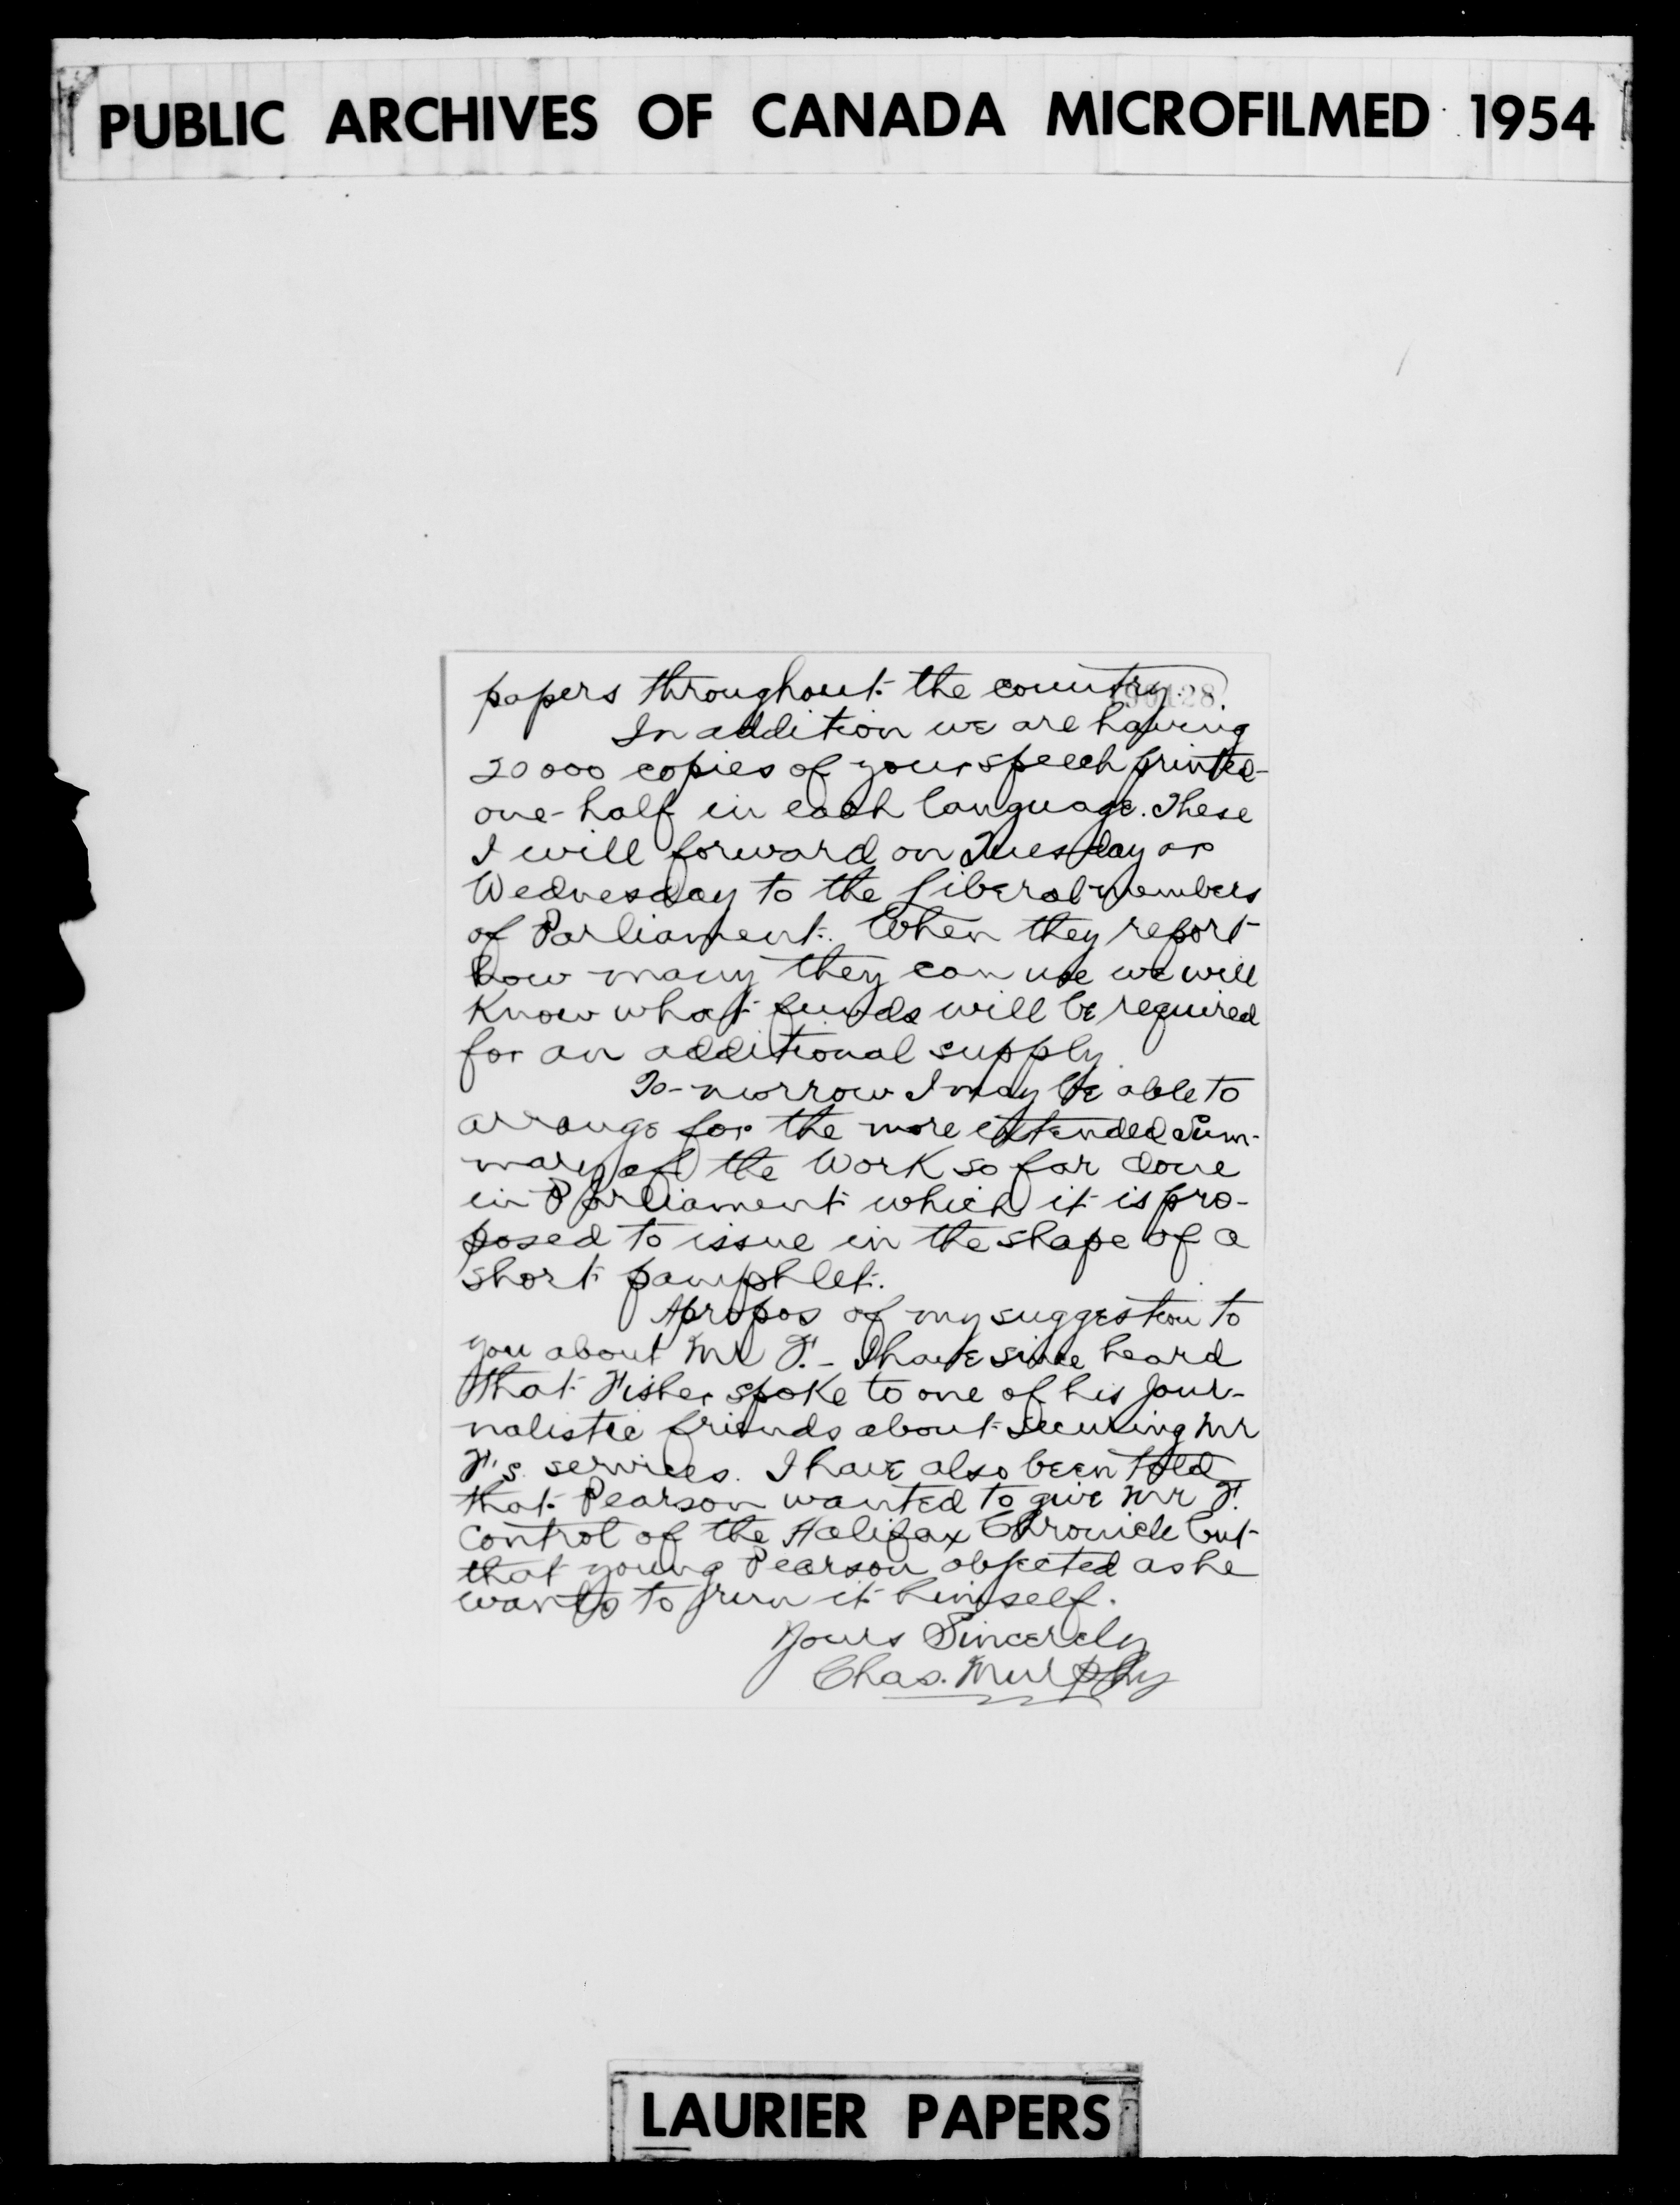 PUBLIC ARCHIVES OF CANADA MICROFILMED 1954
papers throughout the country.
In addition we are having
20000 copies of your speech printed -
one-half in each language. These
I will forward on Tuesday or
Wednesday to the Liberal members
of Parliament. When they report
how many they can use we will
know what funds will be required
for an additional supply.
To-morrow I may be able to
arrange for the more extended sum-
mary of the work so far done
in Parliament which it is pro-
posed to issue in the shape of a
short pamphlet.
Apropos of my suggestion to
you about Mr F. - I have since heard
that Fisher spoke to one of his jour-
nalistic friends about securing Mr
F's. services. I have also been told
that Pearson wanted to give Mr F.
control of the Halifax Chronicle but
that young Pearson objected as he
wants to run it himself.
Yours Sincerely
Chas. Murphy
LAURIER PAPERS